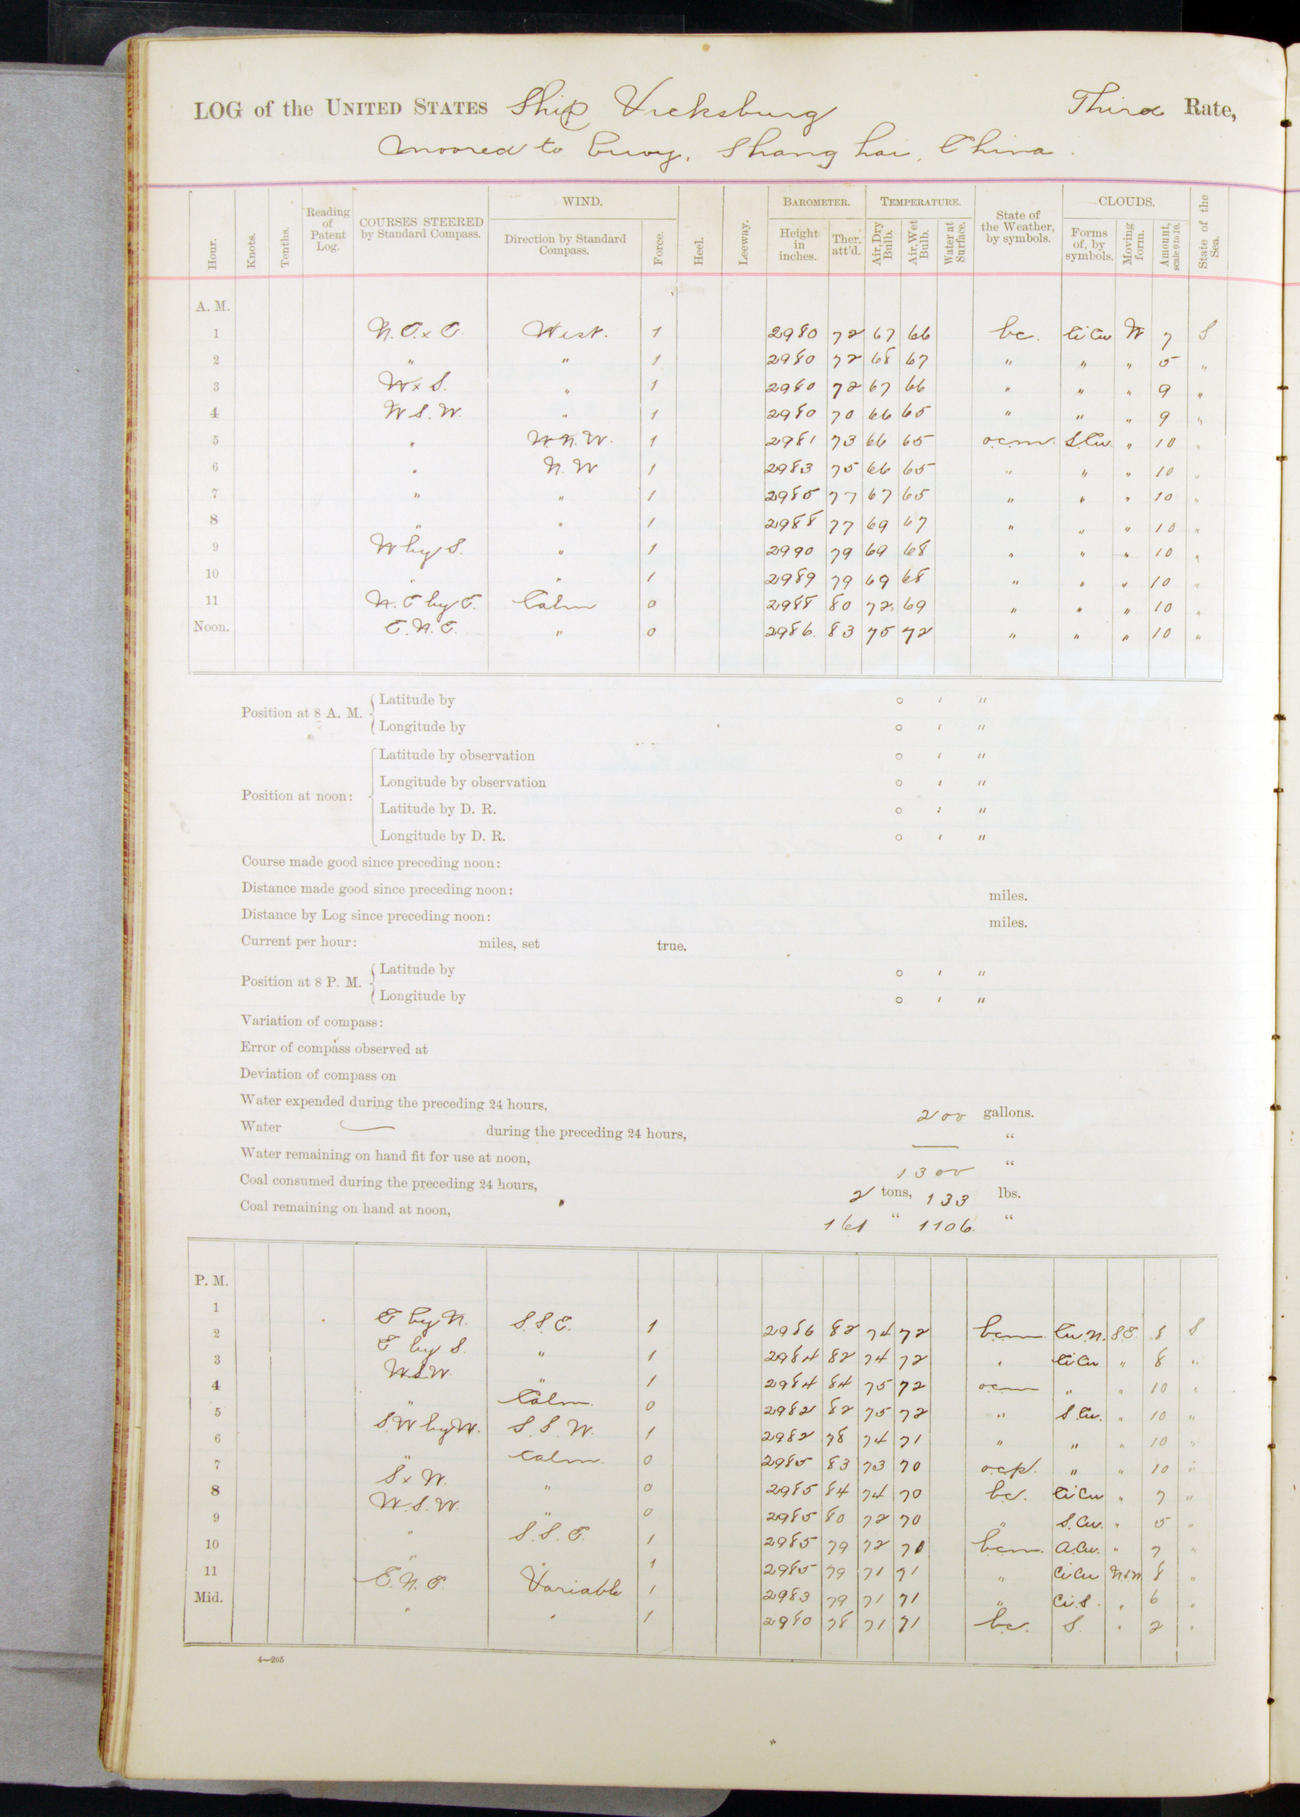 LOG of the UNITED STATES Ship Vicksburg Third Rate,
Moored to Buoy, Shanghai, China.
Hour. Knots. Tenths. Reading of Patent Log. COURSES STEERED by Standard Compass. WIND. Direction by Standard Compass. Force. Heel. Leeway. BAROMETER. Height in inches. Ther. att'd. TEMPERATURE. Air, Dry Bulb. Air, Wet Bulb. Water at Surface. State of the Weather, by symbols. CLOUDS. Forms of, by symbols. Moving form. Amount, scale 0 to 10. State of the Sea.
A. M.
1 N.E.x E. West. 1 2980 72 67 66 bc. Ci Cu W 7 S
2 " " 1 2980 72 68 67 " " " 5 "
3 W x S. " 1 2980 72 67 66 " " " 9 "
4 W S. W. " 1 2980 70 66 65 " " " 9 "
5 " W.N.W. 1 2981 73 66 65 ocm. S.Cu. " 10 "
6 " N. W 1 2983 75 66 65 " " " 10 "
7 " " 1 2985 77 67 65 " " " 10 "
8 " " 1 2988 77 69 67 " " " 10 "
9 W by S. " 1 2990 79 69 68 " " " 10 "
10 " " 1 2989 79 69 68 " " " 10 "
11 N. E by E. Calm 0 2988 80 72 69 " " " 10 "
Noon. E. N. E. " 0 2986. 83 75 72 " " " 10 "
Position at 8 A. M. Latitude by ° ′ ″
Longitude by ° ′ ″
Position at noon: Latitude by observation ° ′ ″
Longitude by observation ° ′ ″
Latitude by D. R. ° ′ ″
Longitude by D. R. ° ′ ″
Course made good since preceding noon:
Distance made good since preceding noon: miles.
Distance by Log since preceding noon: miles.
Current per hour: miles, set true.
Position at 8 P. M. Latitude by ° ′ ″
Longitude by ° ′ ″
Variation of compass:
Error of compass observed at
Deviation of compass on
Water expended during the preceding 24 hours, 200 gallons.
Water — during the preceding 24 hours, — "
Water remaining on hand fit for use at noon, 1300 "
Coal consumed during the preceding 24 hours, 2 tons, 133 lbs.
Coal remaining on hand at noon, 161 " 1106 "
P. M.
1 E by N. S. S E. 1 2986 82 74 72 bcm. Cu.N. S E. 8 S
2 E by S. " 1 2984 82 74 72 " Ci Cu " 8 "
3 W.S.W. " 1 2984 84 75 72 ocm " " 10 "
4 " Calm. 0 2982 82 75 72 " S.Cu. " 10 "
5 S.W by W. S. S. W. 1 2982 78 74 71 " " " 10 "
6 " Calm. 0 2985 83 73 70 ocp. " " 10 "
7 S x W. " 0 2985 84 74 70 bc. Ci Cu " 7 "
8 W. S. W. " 0 2985 80 72 70 " S.Cu. " 5 "
9 " S. S. E. 1 2985 79 72 70 bcm. A.Cu. " 7 "
10 " " 1 2985 79 71 71 " Ci Cu 8 "
11 E. N. E. Variable 1 2983 79 71 71 " Ci.S. " 6 "
Mid. " " 1 2980 78 71 71 bc. S. " 2 "
4—205